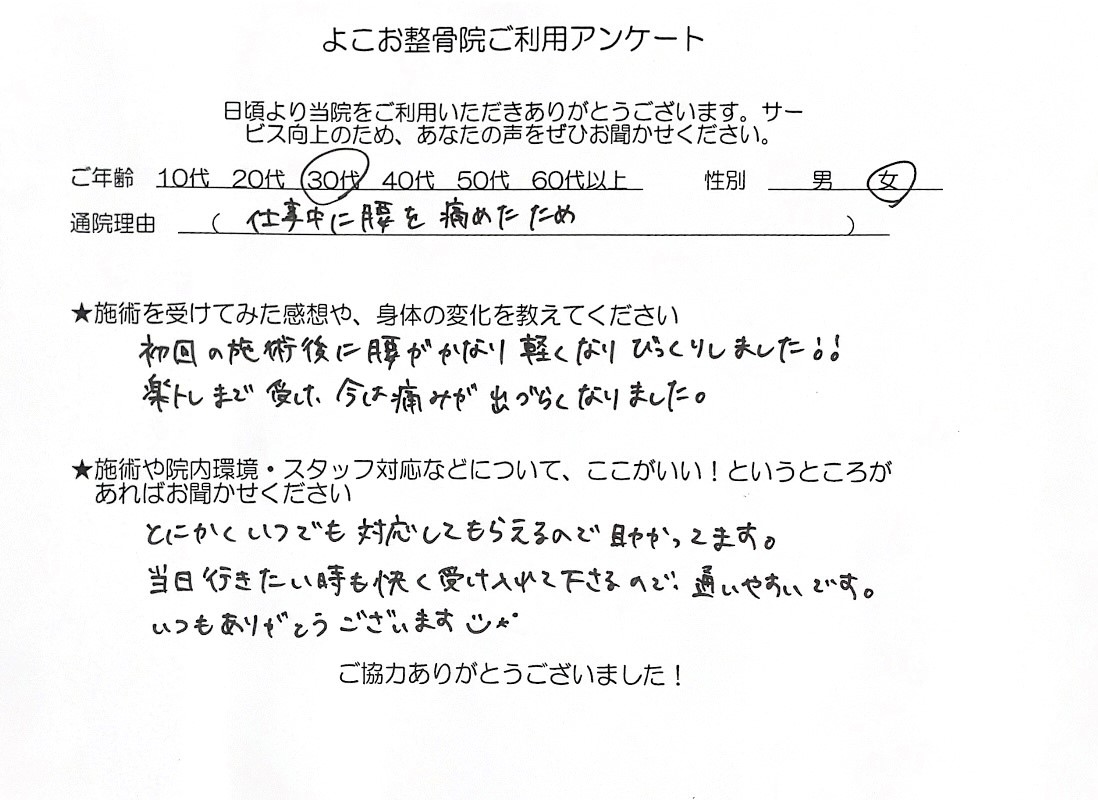 よこお整骨院ご利用アンケート
日頃より当院をご利用いただきありがとうございます。サー
ビス向上のため、あなたの声をぜひお聞かせください。
ご年齢 10代 20代 30代 40代 50代 60代以上 性別 男 女
通院理由 ( 仕事中に腰を痛めたため )
★施術を受けてみた感想や、身体の変化を教えてください
初回の施術後に腰がかなり軽くなりびっくりしました!!
楽トレまで受け、今は痛みが出づらくなりました。
★施術や院内環境・スタッフ対応などについて、ここがいい！というところが
あればお聞かせください
とにかくいつでも対応してもらえるので助かってます。
当日行きたい時も快く受け入れて下さるので、通いやすいです。
いつもありがとうございます
ご協力ありがとうございました！